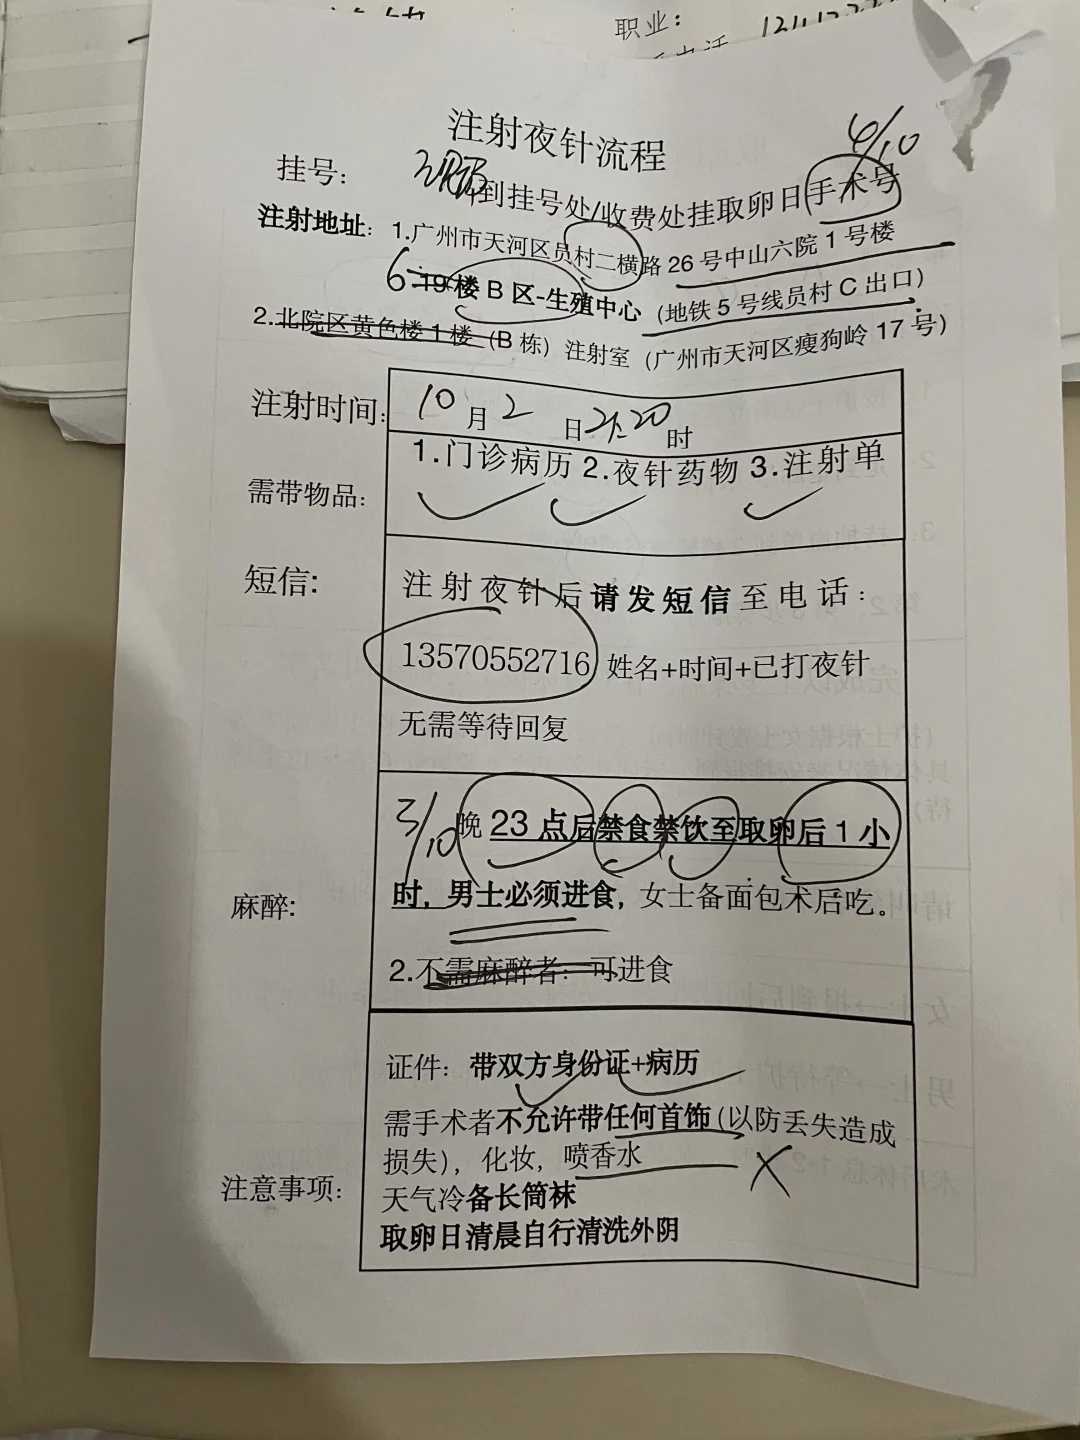 职业：
注射夜针流程
4/10
挂号：
到挂号处/收费处挂取卵日手术号
注射地址：1.广州市天河区员村二横路 26 号中山六院 1 号楼
6 19 楼 B 区-生殖中心（地铁 5 号线员村 C 出口）
2.北院区黄色楼 1 楼（B 栋）注射室（广州市天河区瘦狗岭 17 号）
注射时间： 10 月 2 日 21:20 时
需带物品： 1.门诊病历 2.夜针药物 3.注射单
短信: 注射夜针后请发短信至电话：
13570552716 姓名+时间+已打夜针
无需等待回复
3/10 晚 23 点后禁食禁饮至取卵后 1 小
麻醉: 时，男士必须进食，女士备面包术后吃。
2.不需麻醉者：可进食
证件：带双方身份证+病历
需手术者不允许带任何首饰（以防丢失造成
损失），化妆，喷香水
注意事项： 天气冷备长筒袜
取卵日清晨自行清洗外阴